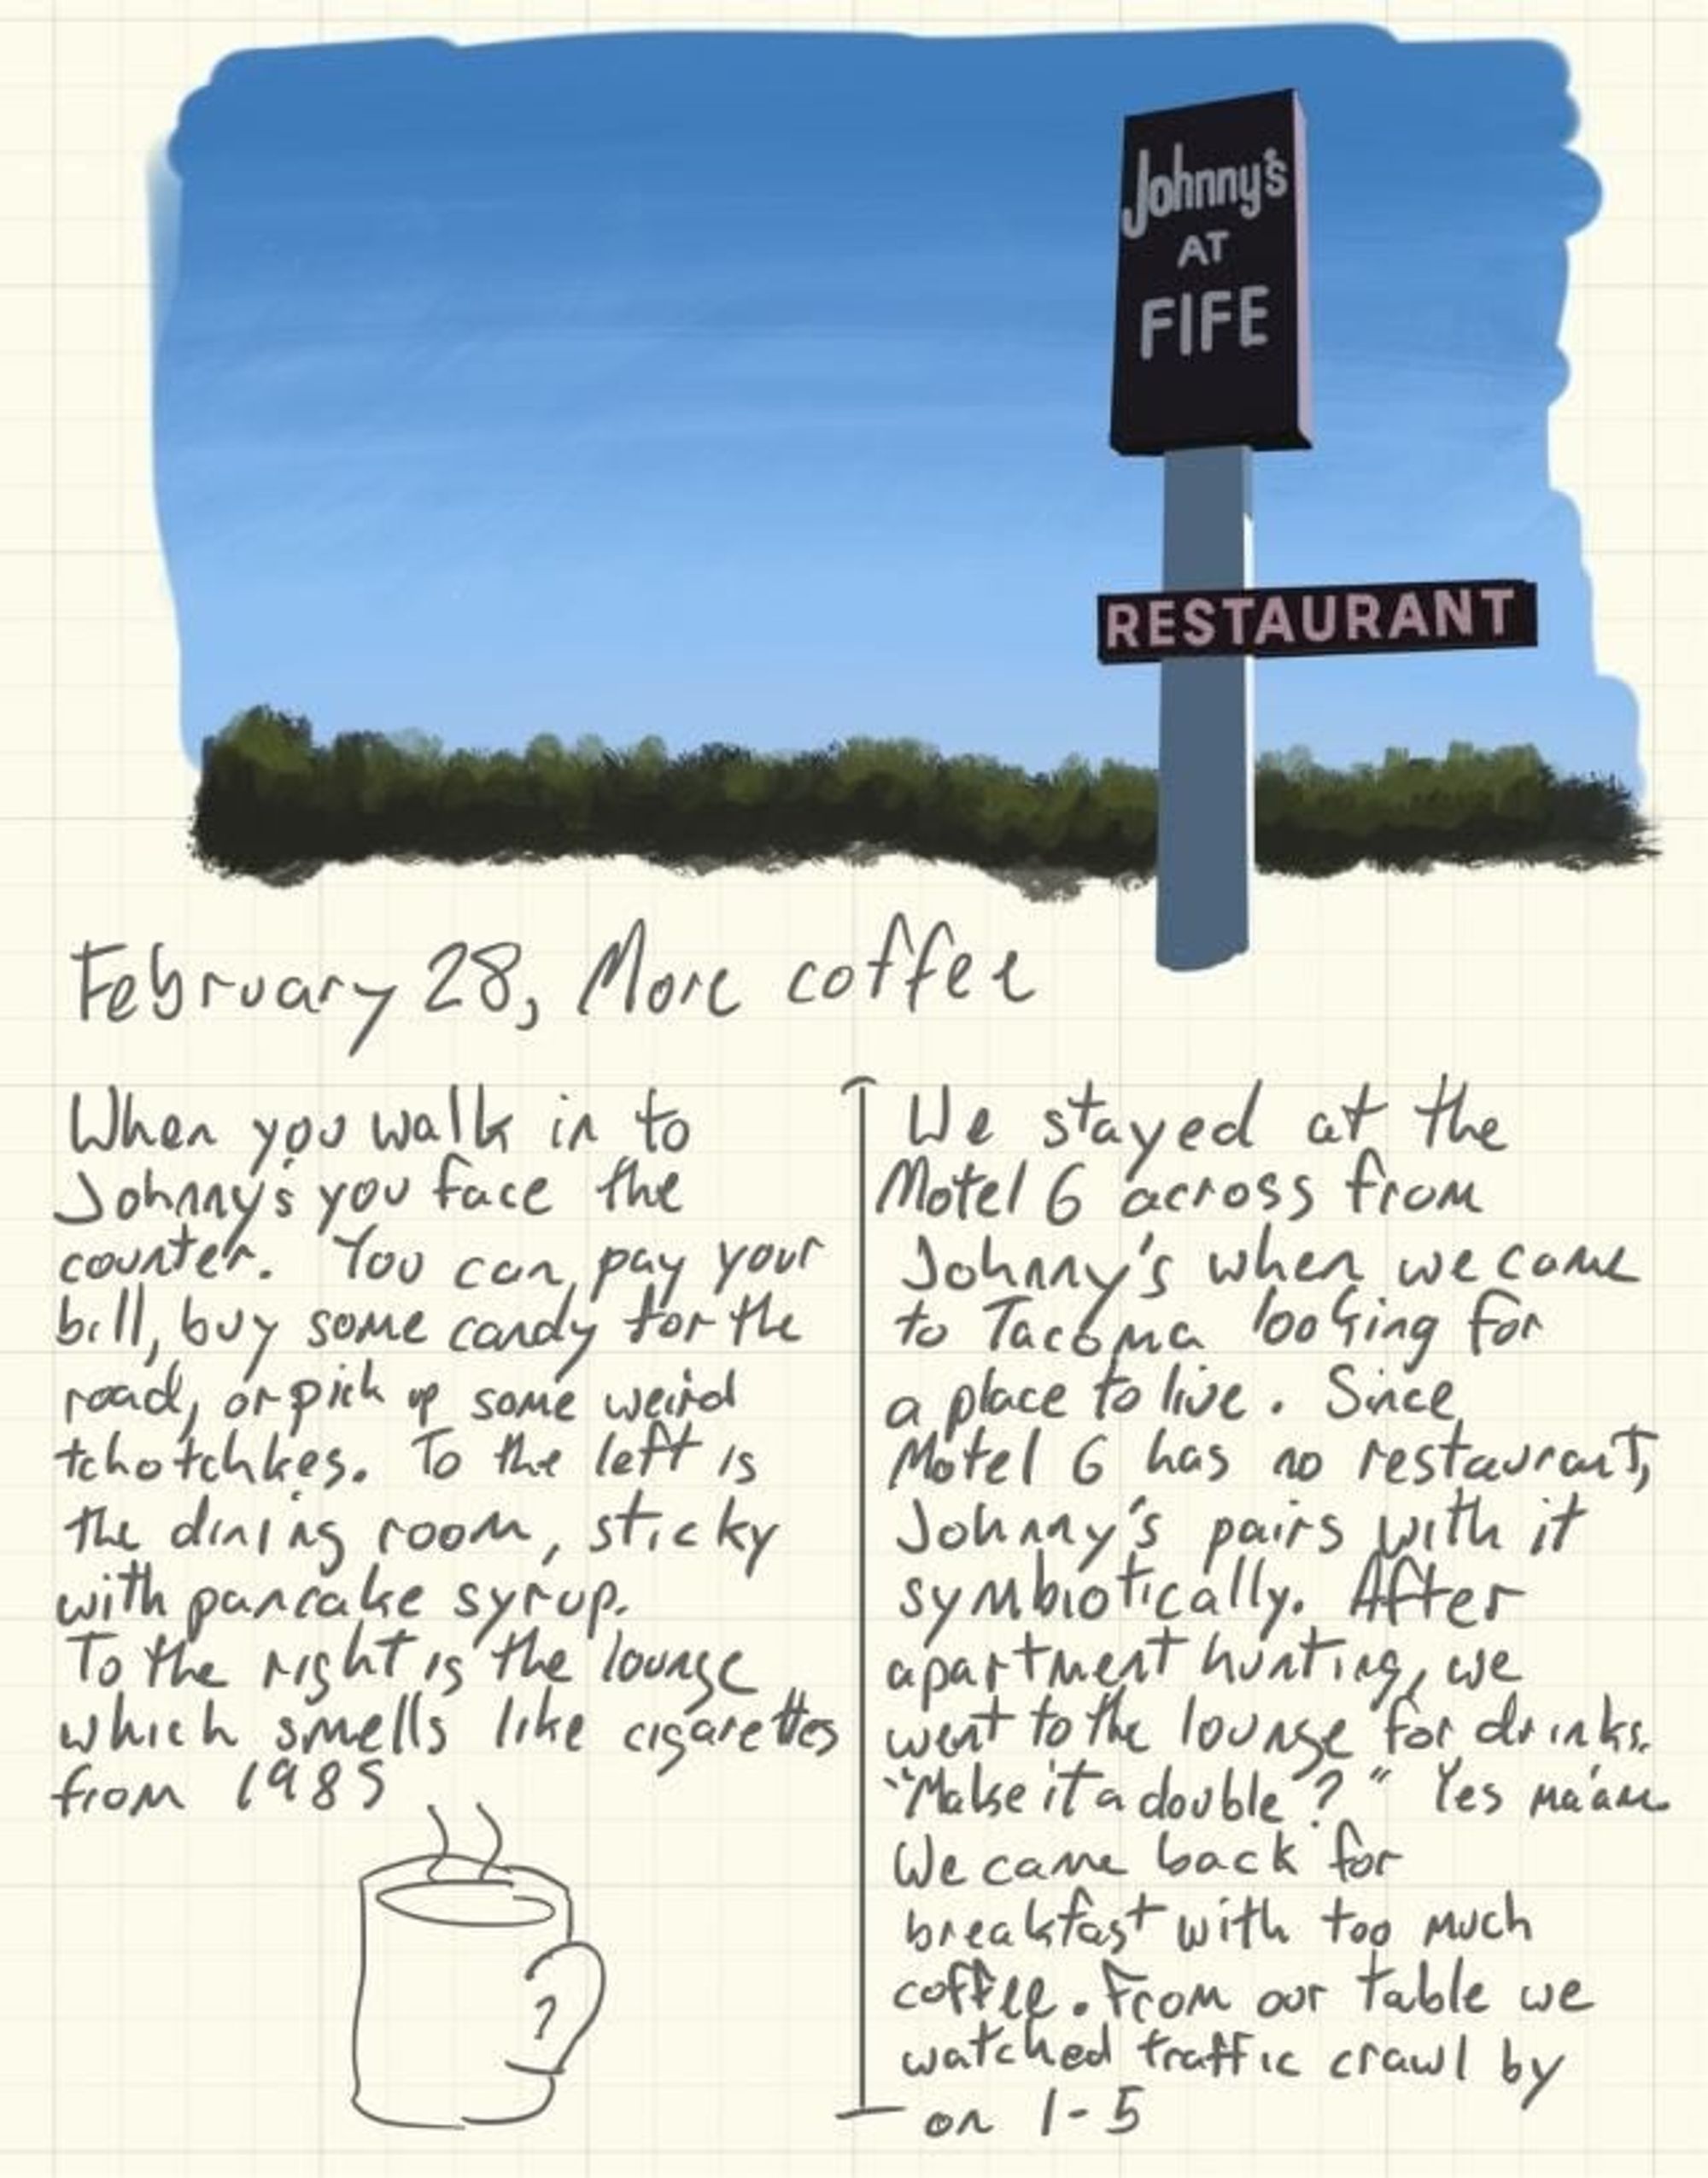 Johnny's
AT
FIFE
RESTAURANT
February 28, More coffee
When you walk in to
Johnny's you face the
counter. You can pay your
bill, buy some candy for the
road, or pick up some weird
tchotchkes. To the left is
the dining room, sticky
with pancake syrup.
To the right is the lounge
which smells like cigarettes
from 1985
We stayed at the
Motel 6 across from
Johnny's when we came
to Tacoma looking for
a place to live. Since
Motel 6 has no restaurant,
Johnny's pairs with it
symbiotically. After
apartment hunting, we
went to the lounge for drinks.
"Make it a double?" Yes ma'am.
We came back for
breakfast with too much
coffee. From our table we
watched traffic crawl by
on I-5